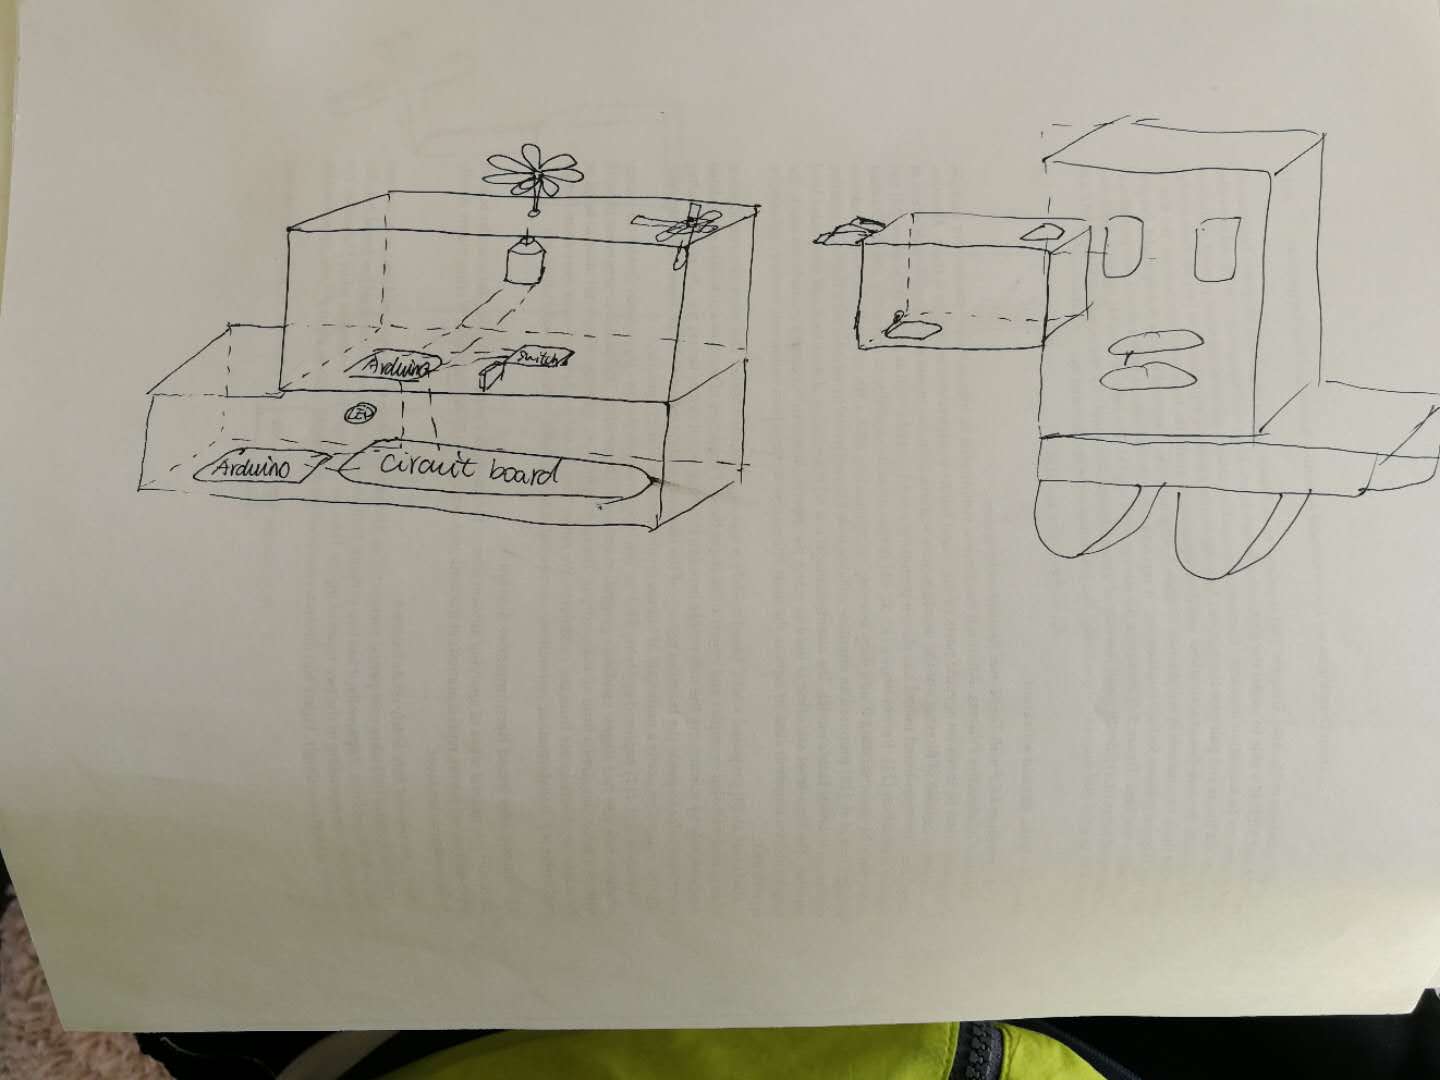 Arduino
Switch
LED
Arduino
circuit board